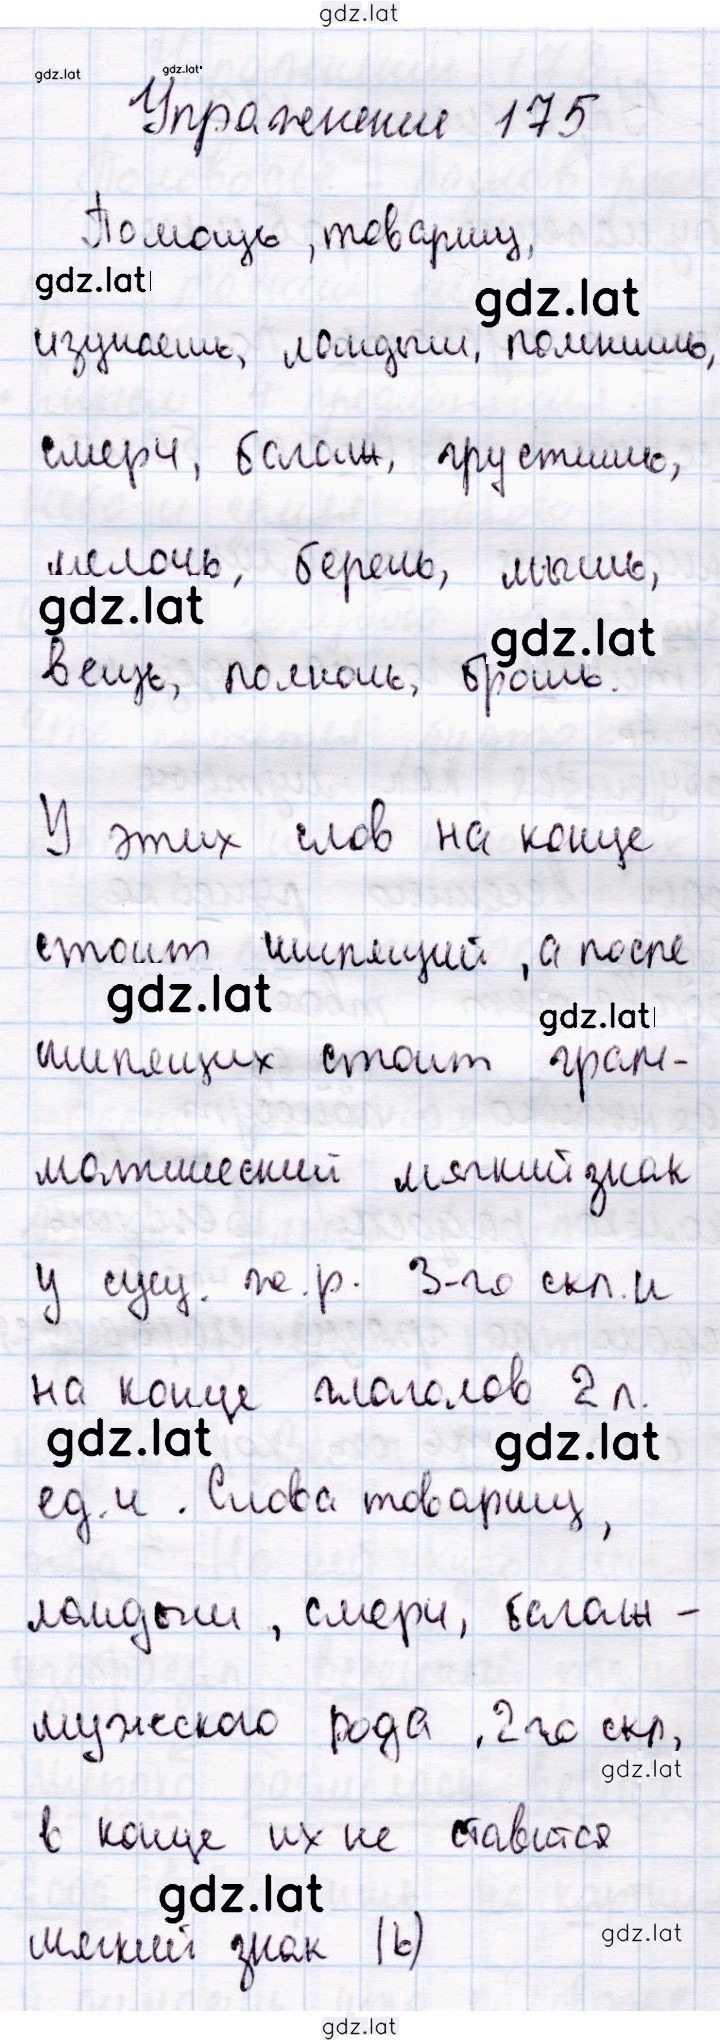 gdz.lat
gdz.lat gdz.lat
Упражнение 175
Помощь, товарищ,
gdz.lat gdz.lat
изучаешь, ландыш, помнишь,
смерч, багаж, грустишь,
мелочь, беречь, мышь,
gdz.lat gdz.lat
вещь, полночь, брошь.
У этих слов на конце
стоит шипящий, а после
gdz.lat gdz.lat
шипящих стоит грам-
матический мягкий знак
у сущ. ж.р. 3-го скл. и
на конце глаголов 2 л.
gdz.lat gdz.lat
ед.ч. Слова товарищ,
ландыш, смерч, багаж -
мужского рода, 2го скл,
gdz.lat
в конце их не ставится
gdz.lat gdz.lat
мягкий знак (ь)
gdz.lat